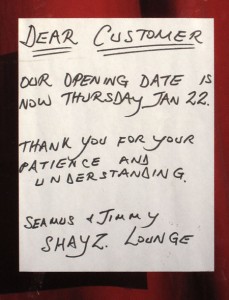 DEAR CUSTOMER
OUR OPENING DATE IS
NOW THURSDAY JAN 22.
THANK YOU FOR YOUR
PATIENCE AND
UNDERSTANDING.
SEAMUS & JIMMY
SHAYZ. LOUNGE